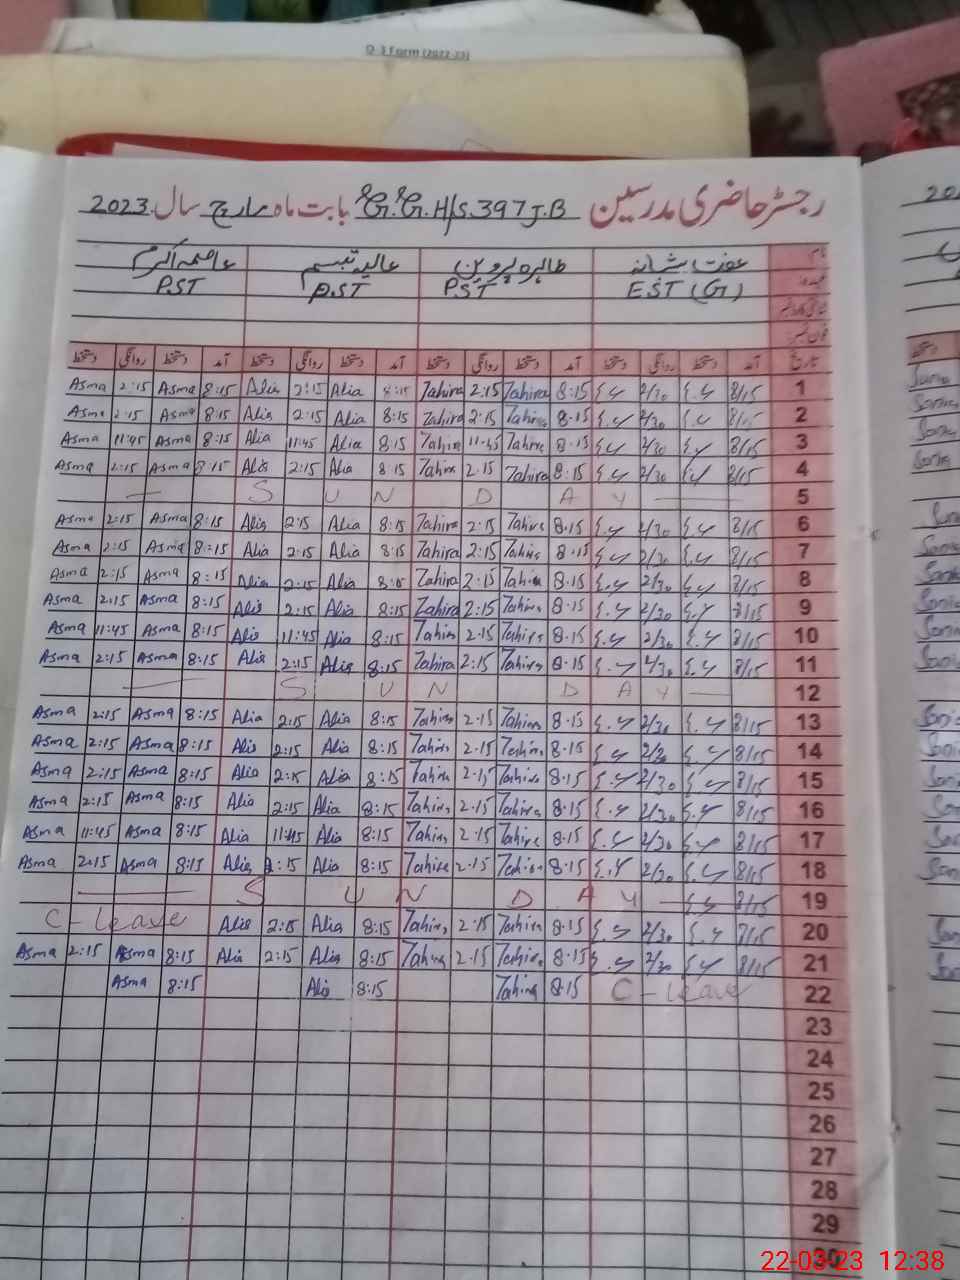 Q_3 Form (2022-23)
رجسٹر حاضری مدرسین G.G.H/S.397 J.B بابت ماہ مارچ سال 2023
نام عفت شبانہ طاہرہ پروین عالیہ تبسم عاصمہ اکرم
عہدہ EST (G) P.ST P.ST P.ST
شناختی کارڈ نمبر
فون نمبر
تاریخ آمد دستخط روانگی دستخط آمد دستخط روانگی دستخط آمد دستخط روانگی دستخط آمد دستخط روانگی دستخط
Asma 2:15 Asma 8:15 Alia 2:15 Alia 8:15 Tahira 2:15 Tahira 8:15 2/30 8/15 1
Asma 2:15 Asma 8:15 Alia 2:15 Alia 8:15 Tahira 2:15 Tahira 8:15 2/30 8/15 2
Asma 11:45 Asma 8:15 Alia 11:45 Alia 8:15 Tahira 11:45 Tahira 8:15 2/30 8/15 3
Asma 2:15 Asma 8:15 Alia 2:15 Alia 8:15 Tahira 2:15 Tahira 8:15 2/30 8/15 4
— S U N D A Y — 5
Asma 2:15 Asma 8:15 Alia 2:15 Alia 8:15 Tahira 2:15 Tahira 8:15 2/30 8/15 6
Asma 2:15 Asma 8:15 Alia 2:15 Alia 8:15 Tahira 2:15 Tahira 8:15 2/30 8/15 7
Asma 2:15 Asma 8:15 Alia 2:15 Alia 8:15 Tahira 2:15 Tahira 8:15 2/30 8/15 8
Asma 2:15 Asma 8:15 Alia 2:15 Alia 8:15 Tahira 2:15 Tahira 8:15 2/30 8/15 9
Asma 11:45 Asma 8:15 Alia 11:45 Alia 8:15 Tahira 2:15 Tahira 8:15 2/30 8/15 10
Asma 2:15 Asma 8:15 Alia 2:15 Alia 8:15 Tahira 2:15 Tahira 8:15 2/30 8/15 11
— S U N D A Y — 12
Asma 2:15 Asma 8:15 Alia 2:15 Alia 8:15 Tahira 2:15 Tahira 8:15 2/30 8/15 13
Asma 2:15 Asma 8:15 Alia 2:15 Alia 8:15 Tahira 2:15 Tahira 8:15 2/30 8/15 14
Asma 2:15 Asma 8:15 Alia 2:15 Alia 8:15 Tahira 2:15 Tahira 8:15 2/30 8/15 15
Asma 2:15 Asma 8:15 Alia 2:15 Alia 8:15 Tahira 2:15 Tahira 8:15 2/30 8/15 16
Asma 11:45 Asma 8:15 Alia 11:45 Alia 8:15 Tahira 2:15 Tahira 8:15 2/30 8/15 17
Asma 2:15 Asma 8:15 Alia 2:15 Alia 8:15 Tahira 2:15 Tahira 8:15 2/30 8/15 18
— S U N D A Y — 8/15 19
C-leave Alia 2:15 Alia 8:15 Tahira 2:15 Tahira 8:15 2/30 8/15 20
Asma 2:15 Asma 8:15 Alia 2:15 Alia 8:15 Tahira 2:15 Tahira 8:15 2/30 8/15 21
Asma 8:15 Alia 8:15 Tahira 8:15 C-leave 22
23
24
25
26
27
28
29
30
22-03-23 12:38